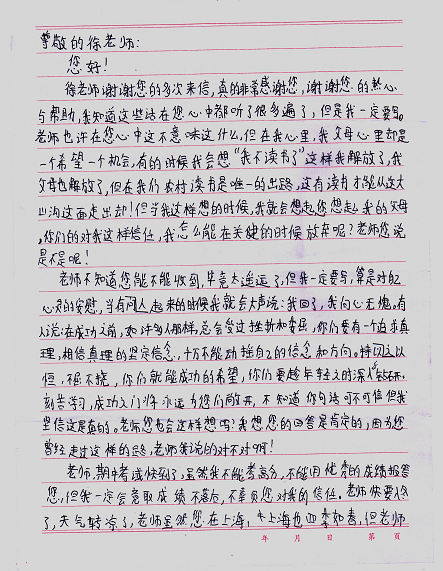 尊敬的徐老师:
您好!
徐老师谢谢您的多次来信,真的非常感谢您,谢谢您的热心
与帮助,我知道这些话在您心中都听了很多遍了,但是我一定要写。
老师也许在您心中这不意味这什么,但在我心里,我父母心里却是
一个希望一个机会,有的时候我会想"我不读书了"这样我解放了,我
父母也解放了,但在我们农村读书是唯一的出路,这有读书才能从这大
山沟这面走出却!但当我这样想的时候,我就会想起您想起我的父母
,你们的对我这样信任,我怎么能在关健的时候放弃呢?老师您说
是不是呢!
老师不知道您能不能收到,毕竟太遥远了,但我一定要写,算是对自己
心灵的安慰,当有问人起来的时候我就会大声说:我回了,我问心无愧,有
人说:在成功之前,如许多人那样,总会尝过挫折和委屈,你们要有一个追求真
理,相信真理的坚定信念,十万不能动摇自己的信念和方向。持之以
恒,不屈不挠,你们就能成功的希望,你们要趁年轻之的
刻苦学习,成功之门将永远为您们敞开,不知道你句话可不可信但我
坚信这是真的。老师您也会这样想吗?我想您的回答是肯定的,因为您
曾经走过这样的路,老师我说的对不对啊!
老师,期中考试快到了,虽然我不能考高分,不能用优秀的成绩报答
您,但我一定会竟取成绩不落后,不辜负您对我的信任。老师快要入冬
了,天气转凉了,老师虽然您在上海,上海也四季如春,但老师
年 月 日 第 页